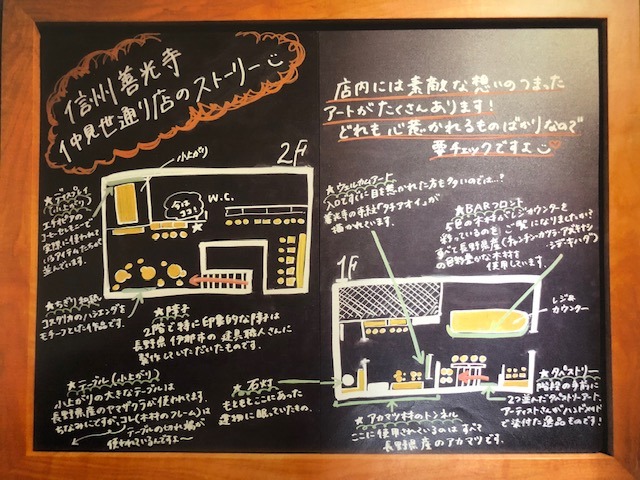 信州善光寺
仲見世通り店のストーリー
店内には素敵な想いのつまった
アートがたくさんあります!
どれも心惹かれるものばかりなので
要チェックですよ
2F
小上がり
W.C.
今は
ココ!
★ディスプレイ
(小上がり)
エチオピアの
コーヒーセレモニーで
実際に使われて
いるアイテムたちが
並んでいます。
★ちぎり和紙
コスタリカのハシエンダを
モチーフとした作品です。
★障子
2階で特に印象的な障子は
長野県伊那市の建具職人さんに
製作していただいたものです。
★テーブル(小上がり)
小上がりの大きなテーブルは
長野県産のヤマザクラが使われてます。
ちなみにですが、コレ(木枠のフレーム)は
テーブルの切れ端が
使われているんですよ〜
★石灯
もともとここにあった
建物に眠っていたもの。
★ウェルカムアート
入口ですぐに目を惹かれた方も多いのでは…?
善光寺の寺紋「タチアオイ」が
描かれています。
★BARフロント
5色の木材がレジカウンターを
彩っているのをご覧になりましたか?
すべて長野県産
の色彩豊かな木材を
使用しています。
1F
レジ
カウンター
★タペストリー
階段の手前に
2つ並んだタペストリーアート。
アーティストさんがハンドメイド
で染付けた逸品ものです!
★アカマツ材のトンネル
ここに使用されているのはすべて
長野県産のアカマツです。